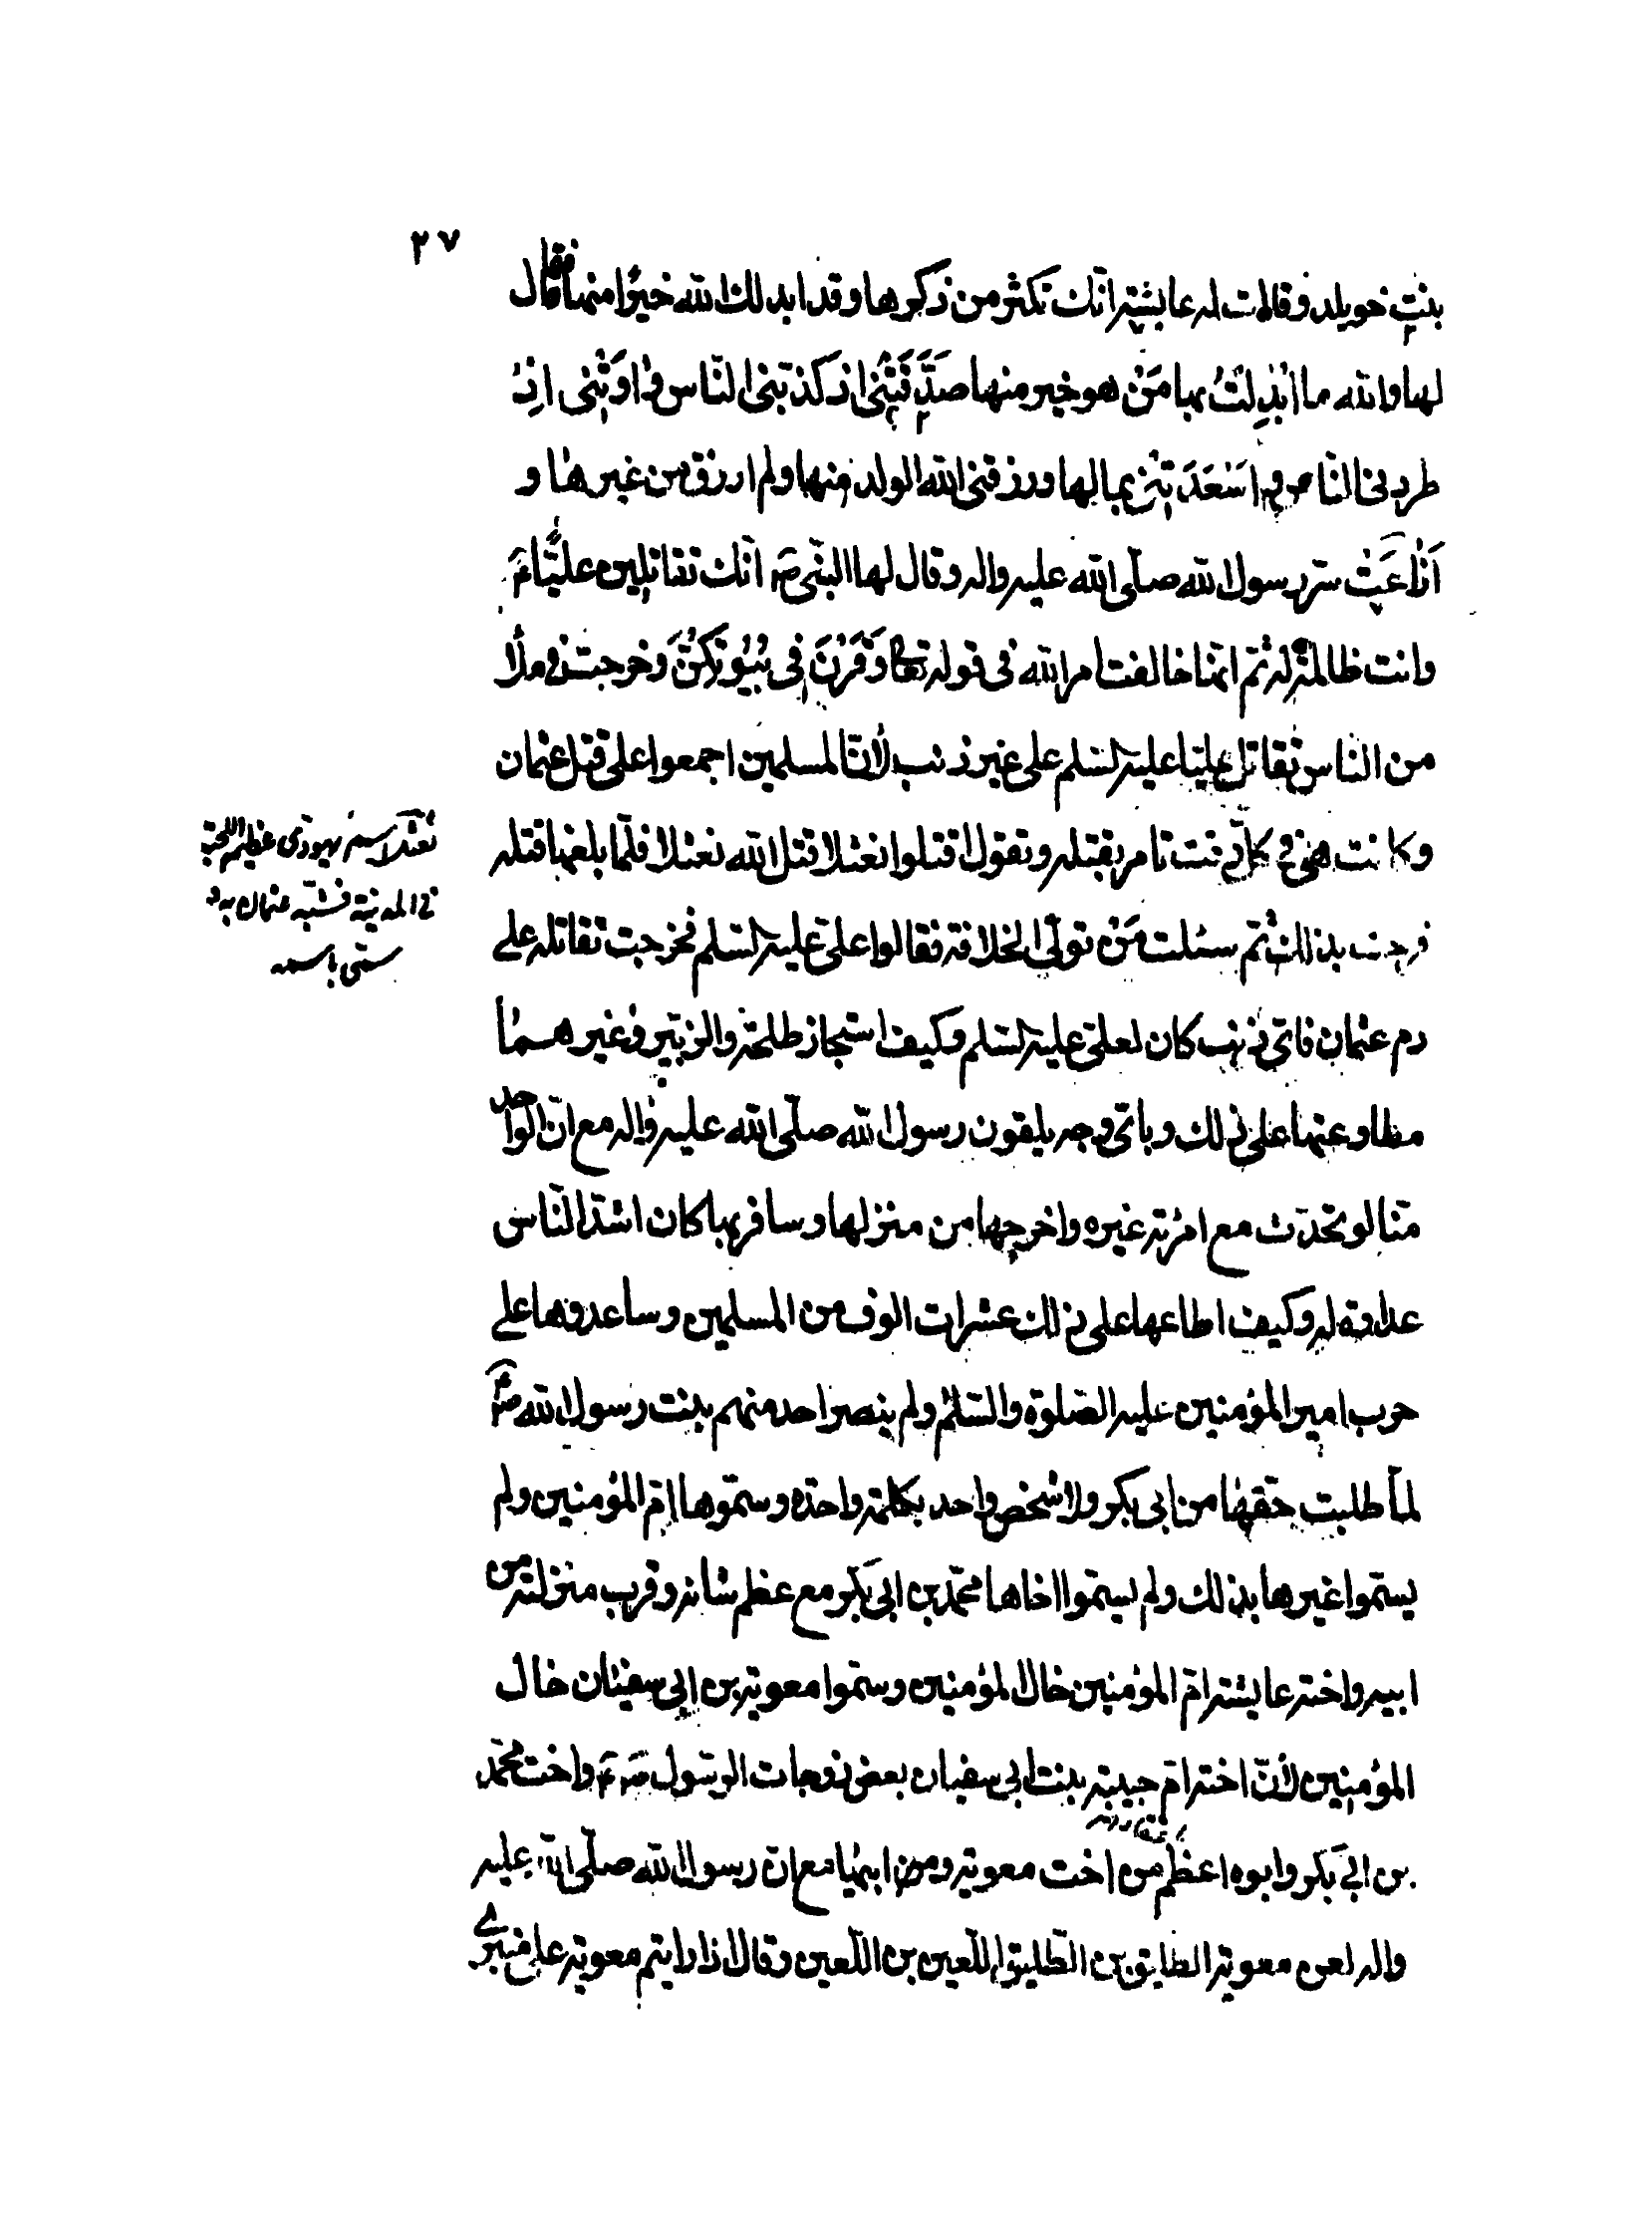 ٢٧
بنت خويلد وقالت له عايشة انّك تكثر من ذكرها وقد ابدلك الله خيرًا منها فقال
لها والله ما اُبْدِلْتُ بها مَنْ هو خير منها صَدَّقَتْنى اذ كذبتنى النّاس واوَتْنِى اِذْ
طردنى الناس واَسْعَدَتْنِى بمالها ورزقنى الله الولد منها ولم ارزق من غيرها و
اَذٰاعَتْ سرّ رسول الله صلّى الله عليه واله وقال لها النبّى صَ انّك تقاتلين عليًّا عَ
وانت ظالمة له ثمّ انّها خالفت امر الله فى قوله تعا وَقَرْنَ فِى بُيُوتِكُنَّ وخرجت فى ملأ
من النّاس تقاتل عليّا عليه السّلم على غير ذنب لأنّ المسلمين اجمعوا على قتل عثمان
وكانت هى فى كلّ وقت تامر بقتله وتقول اقتلوا نعثلا قتل الله نعثلا فلمّا بلغها قتله
نعثلا اسم يهودى عظيم اللحية
فى المدينة فشبّه عثمان به و
سمّى باسمه
فرحت بذلك ثمّ سئلت مَنْ تولّى الخلافة فقالوا علىّ عليه السّلم فخرجت تقاتله على
دم عثمان فاىّ ذنب كان لعلىّ عليه السّلم وكيف استجاز طلحة والزبير وغيرهما
مطاوعتها على ذلك وباىّ وجه يلقون رسول الله صلّى الله عليه واله مع انّ الواحد
منّا لو تحدّث مع امرئة غيره واخرجها من منزلها وسافر بها كان اشدّ النّاس
عداوة له وكيف اطاعها على ذلك عشرات الوف من المسلمين وساعدوها على
حرب امير المؤمنين عليه الصّلوة والسّلم ولم ينصر احد منهم بنت رسول الله ص
لمّا طلبت حقّها من ابى بكر ولا شخص واحد بكلمة واحدة وسمّوها امّ المؤمنين ولم
يسمّوا غيرها بذلك ولم يسمّوا اخاها محمّد بن ابى بكر مع عظم شانه وقرب منزلته من
ابيه واخته عايشة امّ المؤمنين خال المؤمنين وسمّوا معوية بن ابى سفيان خال
المؤمنين لأنّ اخته امّ حبيبة بنت ابى سفيان بعض زوجات الرسّول صَ عَ واخت محمّد
بن ابى بكر وابوه اعظم من اخت معوية ومن ابيها مع انّ رسول الله صلّى الله عليه
واله لعن معوية الطليق بن الطّليق اللعين بن اللّعين وقال اذا رايتم معوية على منبرى